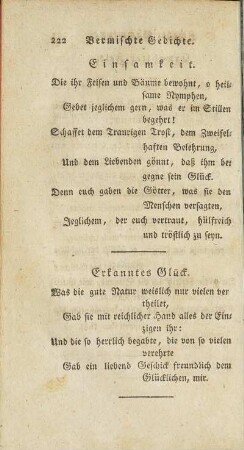 222 Vermischte Gedichte.
Einsamkeit.
Die ihr Felsen und Bäume bewohnt, o heil
same Nymphen,
Gebet jeglichem gern, was er im Stillen
begehrt!
Schaffet dem Traurigen Trost, dem Zweifel
haften Belehrung,
Und dem Liebenden gönnt, daß ihm be
gegne sein Glück.
Denn euch gaben die Götter, was sie den
Menschen versagten,
Jeglichem, der euch vertraut, hülfreich
und tröstlich zu seyn.
Erkanntes Glück.
Was die gute Natur weislich nur vielen ver
theilet,
Gab sie mit reichlicher Hand alles der Ein
zigen ihr:
Und die so herrlich begabte, die von so vielen
verehrte
Gab ein liebend Geschick freundlich dem
Glücklichen, mir.